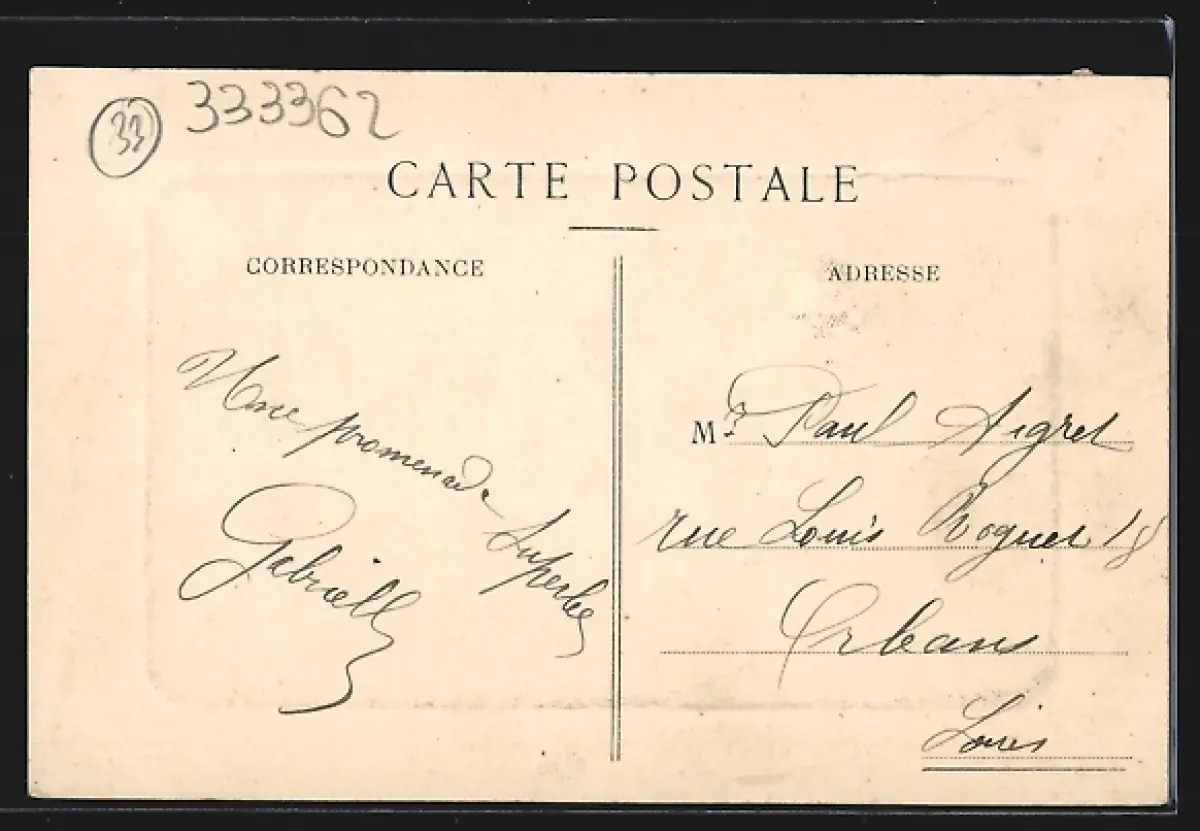 33
333362
CARTE POSTALE
CORRESPONDANCE
ADRESSE
Une promenade superbe
Gabrielle
Mr Paul Aigret
rue Louis Roguet 18
Orleans